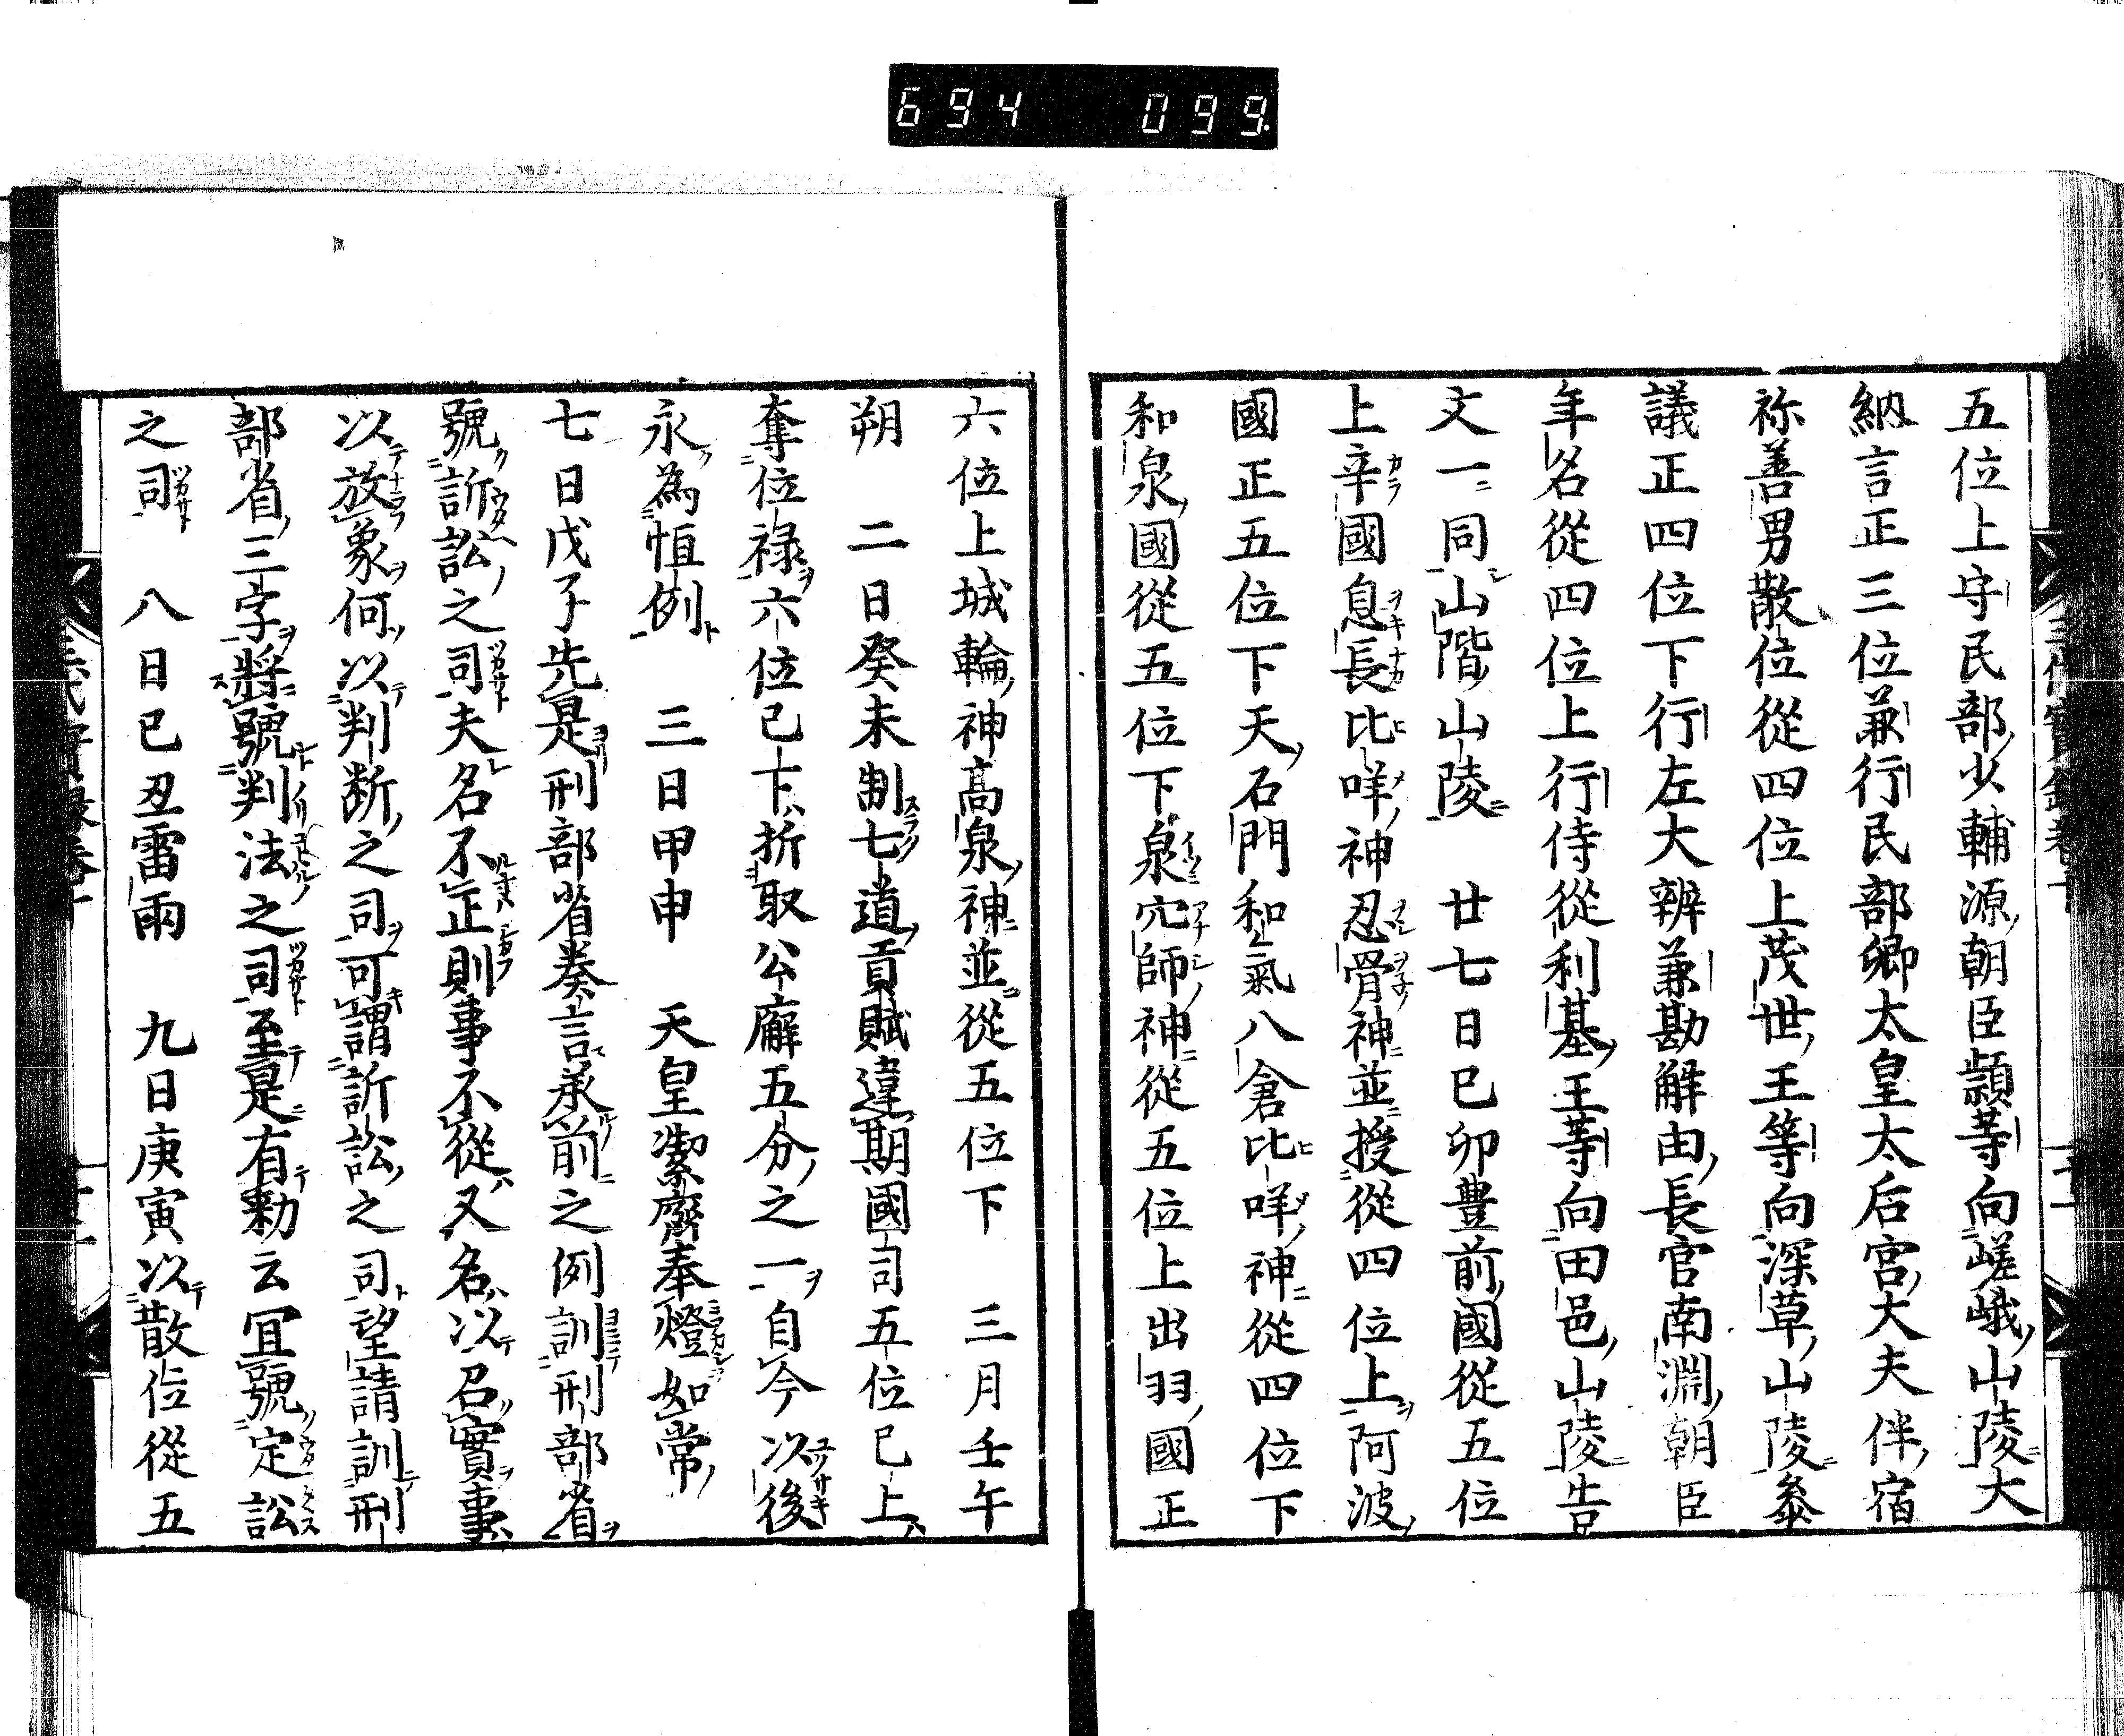 694 099.
五位上守民部少輔源朝臣頴等向嵯峨山陵大
納言正三位兼行民部卿太皇太后宮大夫伴宿
祢善男散位從四位上茂世王等向深草山陵叅
議正四位下行左大辨兼勘解由長官南淵朝臣
年名從四位上行侍從利基王等向田邑山陵告
文一同山階山陵 廿七日己卯豊前國從五位
上辛國息長比咩神忍骨神並授從四位上阿波
國正五位下天石門和氣八倉比咩神從四位下
和泉國從五位下泉穴師神從五位上出羽國正
六位上城輪神高泉神並從五位下 三月壬午
朔 二日癸未制七道貢賦違期國司五位已上
奪位禄六位已下折取公廨五分之一自今以後
永為恒例 三日甲申 天皇潔齋奉燈如常
七日戊子先是刑部省奏言承前之例訓刑部省
號訴訟之司夫名不正則事不從又名以召實事
以放象何以判断之司可謂訴訟之司望請訓刑
部省三字將號判法之司至是有勅云冝號定訟
之司 八日己丑雷雨 九日庚寅以散位從五